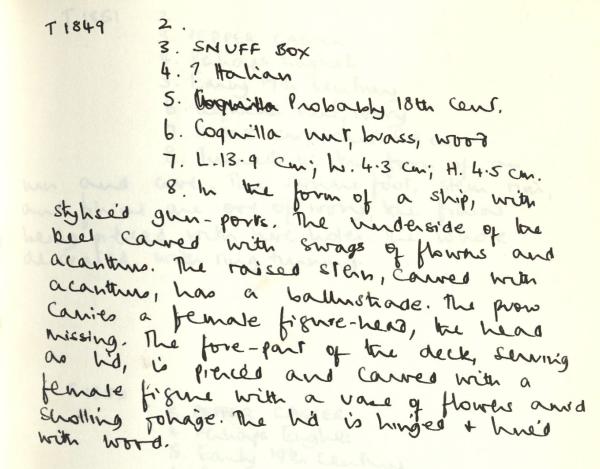 T 1849 2.
3. SNUFF BOX
4. ? Italian
5. Probably 18th cent.
6. Coquilla nut, brass, wood
7. L. 13.9 cm; W. 4.3 cm; H. 4.5 cm.
8 In the form of a ship, with
stylised gun-ports. The underside of the
keel carved with swags of flowers and
acanthus. The raised stern, carved with
acanthus, has a ballustrade. The prow
carries a female figure-head, the head
missing. The fore-part of the deck, serving
as lid, is pierced and carved with a
female figure with a vase of flowers amid
scrolling foliage. The lid is hinged + lined
with wood.